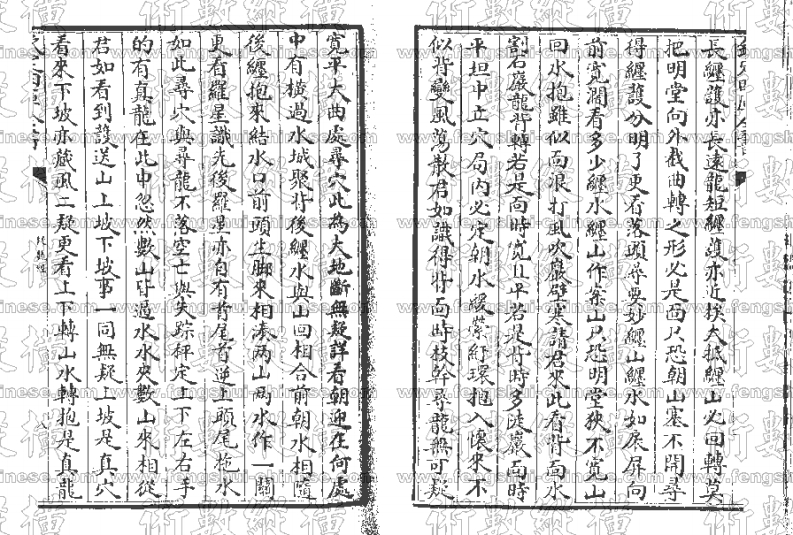 長纏護亦長遠龍短纏護亦近挨大抵纏山必回轉莫
把明堂向外截曲轉之形必是面只恐朝山塞不開尋
得纏護分明了更看落頭尋要妙纏山纏水如屏向
前寬濶看多少纏水纏山作案山只恐明堂狹不寬山
回水抱雖似面浪打風吹巖壁寒請君來此看背面水
割石巖龍背轉若是面時寬且平若是背時多陡巖面時
平坦中立穴局內必定朝水暖縈紆環抱入懷來不
似背變風蕩散君如識得背面時枝幹尋龍無可疑
寬平大曲處尋穴此為大地斷無疑詳看朝迎在何處
中有橫過水城聚背後纏水與山回相合前朝水相隨
後纏抱來結水口前頭生脚來相湊兩山兩水作一關
更看羅星識先後羅星亦自有首尾首逆上頭尾拖水
如此尋穴與尋龍不落空亡與失踪秤定上下左右手
的有真龍在此中忽然數山皆過水水夾數山來相從
君如看到護送山上坡下坡事一同無疑上坡是真穴
看來下坡亦藏風二疑更看上下轉山水轉抱是真龍